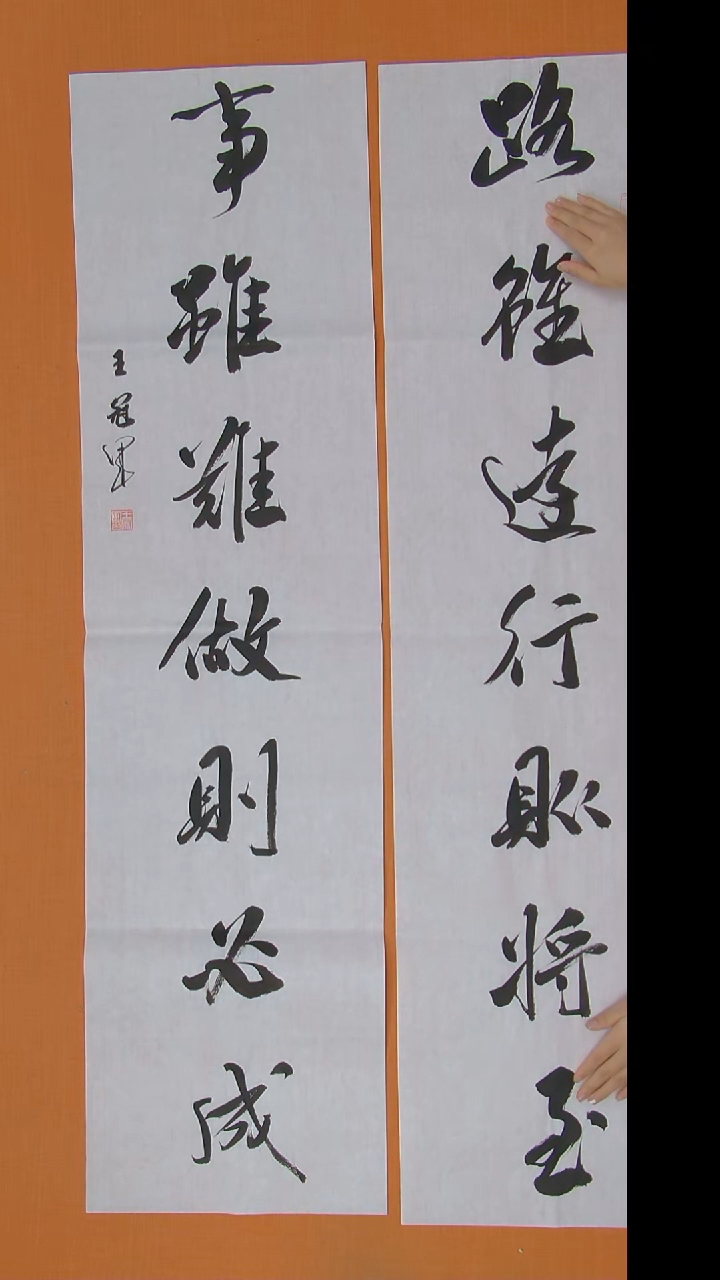 路雖遠行則将至
事雖難做則必成
王